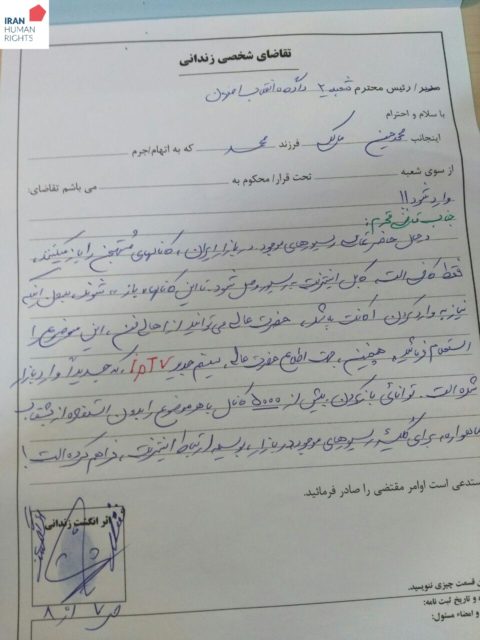 IRAN
HUMAN
RIGHTS
تقاضای شخصی زندانی
مدیر / رئیس محترم شعبه ۲ دادگاه انقلاب
با سلام و احترام
اینجانب محمدحسین فرزند محمد که به اتهام/جرم
از سوی شعبه تحت قرار/ محکوم به می باشم تقاضای:
وارد شود!!
جناب قاضی محترم:
در حال حاضر تمامی رسیورهای موجود در بازار ایران، کانالهای مُستهجن را باز میکنند.
فقط کافی است، کابل اینترنت به رسیور وصل شود، تا این کانالها، باز شوند، بدون اینکه
نیاز به وارد کردن اکانت باشد. حضرتعالی می توانید از اهالی فن، این موضوع را
استعلام فرمائید. همچنین جهت اطلاع حضرتعالی، سیستم جدید IPTV، که جدیداً وارد بازار
شده است. توانائی باز کردن، بیش از ۵۰۰۰ کانال با هر موضوع را بدون استفاده از بشقاب
ماهواره، برای کلیّه رسیورهای موجود در بازار، بوسیله ارتباط اینترنت، فراهم کرده است!
مستدعی است اوامر مقتضی را صادر فرمائید.
اثر انگشت زندانی
ن قسمت چیزی ننویسید.
ه و تاریخ ثبت نامه:
و امضاء مسئول: